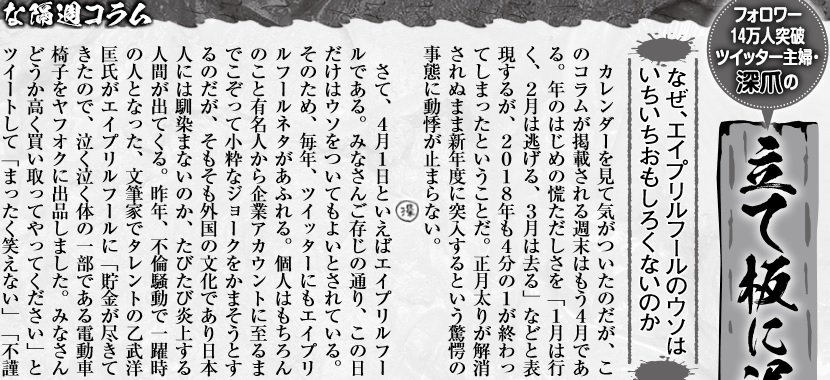 な隔週コラム
フォロワー
14万人突破
ツイッター主婦・
深爪の
立て板に
なぜ、エイプリルフールのウソは
いちいちおもしろくないのか
カレンダーを見て気がついたのだが、こ
のコラムが掲載される週末はもう4月であ
る。年のはじめの慌ただしさを「1月は行
く、2月は逃げる、3月は去る」などと表
現するが、2018年も4分の1が終わっ
てしまったということだ。正月太りが解消
されぬまま新年度に突入するという驚愕の
事態に動悸が止まらない。
深
さて、4月1日といえばエイプリルフー
ルである。みなさんご存じの通り、この日
だけはウソをついてもよいとされている。
そのため、毎年、ツイッターにもエイプリ
ルフールネタがあふれる。個人はもちろん
のこと有名人から企業アカウントに至るま
でこぞって小粋なジョークをかまそうとす
るのだが、そもそも外国の文化であり日本
人には馴染まないのか、たびたび炎上する
人間が出てくる。昨年、不倫騒動で一躍時
の人となった、文筆家でタレントの乙武洋
匡氏がエイプリルフールに「貯金が尽きて
きたので、泣く泣く体の一部である電動車
椅子をヤフオクに出品しました。みなさん
どうか高く買い取ってやってください」と
ツイートして「まったく笑えない」「不謹